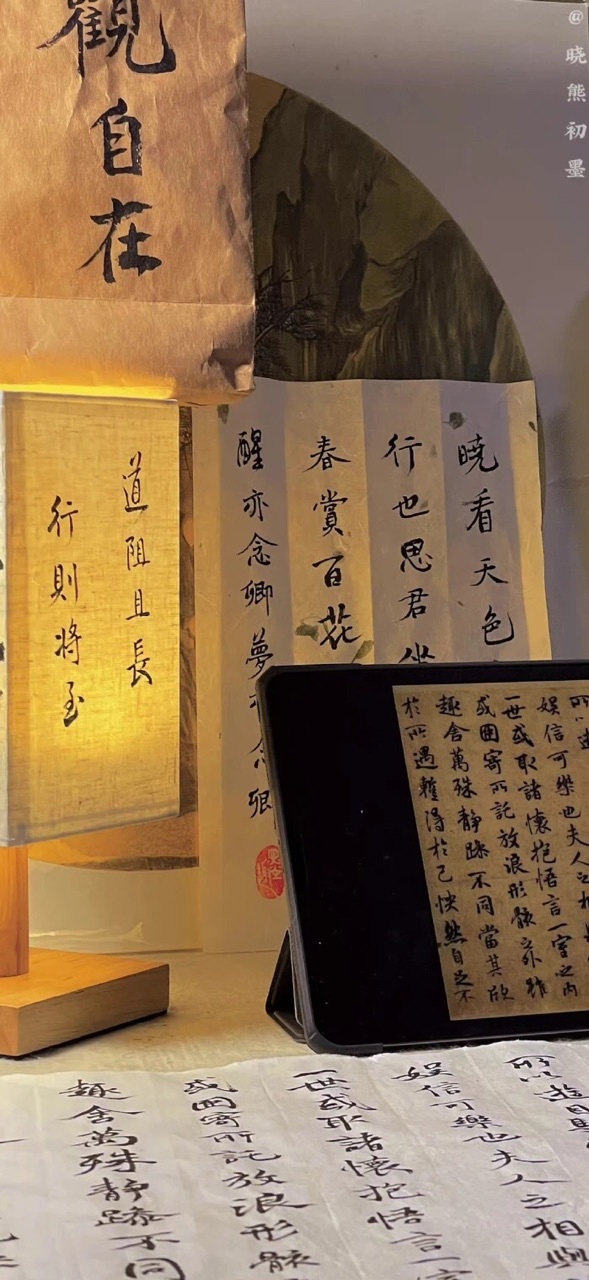 @晓熊初墨
觀自在
道阻且長
行則將至
曉看天色
行也思君坐
春賞百花
醒亦念卿夢亦念卿
所以遊
娛信可樂也夫人之相與
一世或取諸懷抱悟言一室之內
或因寄所託放浪形骸之外雖
趣舍萬殊靜躁不同當其欣
於所遇暫得於己快然自足不
所以遊目騁
娛信可樂也夫人之相與
一世或取諸懷抱悟言一室
或因寄所託放浪形骸
趣舍萬殊靜躁不同